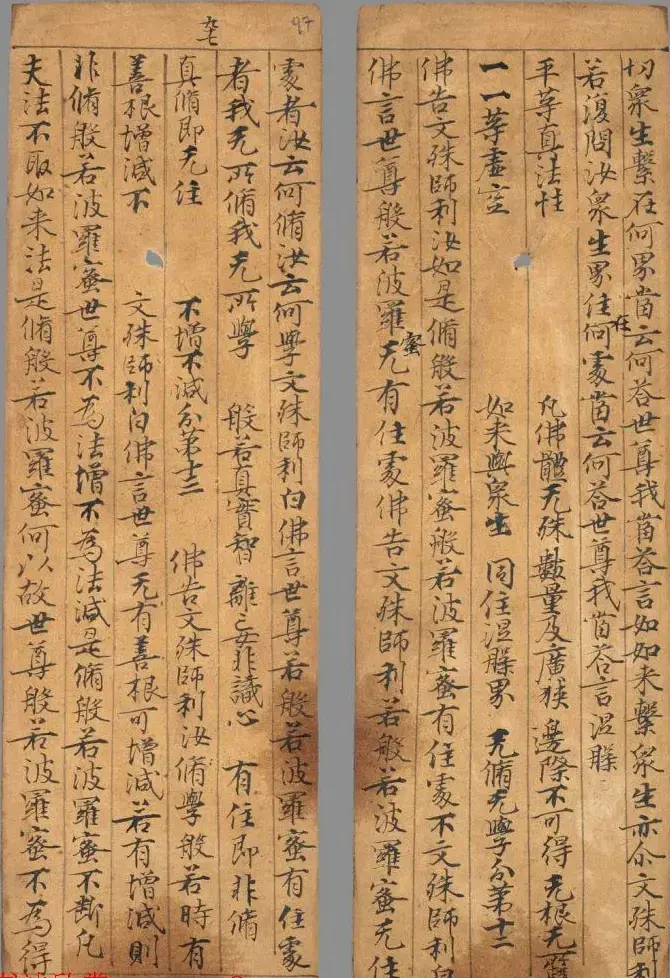 切衆生繫在何界當云何荅世尊我當荅言如如来繫衆生亦尒文殊師利
若復問汝衆生界住在何處當云何荅世尊我當荅言涅槃
平等真法性　凡佛體无殊　數量及廣狹　邊際不可得　无根无
一一等虛空　如来與衆生　同住涅槃界　无脩无學分第十二
佛告文殊師利汝如是脩般若波羅蜜般若波羅蜜有住處不文殊師利白
佛言世尊般若波羅蜜无有住處佛告文殊師利若般若波羅蜜无住
九七
97
處者汝云何脩汝云何學文殊師利白佛言世尊若般若波羅蜜有住處
者我无所脩我无所學　般若真實智　離妄非識心　有住即非脩
真脩即无住　不增不減分第十三　佛告文殊師利汝脩學般若時有
善根增減不　文殊師利白佛言世尊无有善根可增減若有增減則
非脩般若波羅蜜世尊不為法增不為法減是脩般若波羅蜜不斷凡
夫法不取如来法是脩般若波羅蜜何以故世尊般若波羅蜜不為得